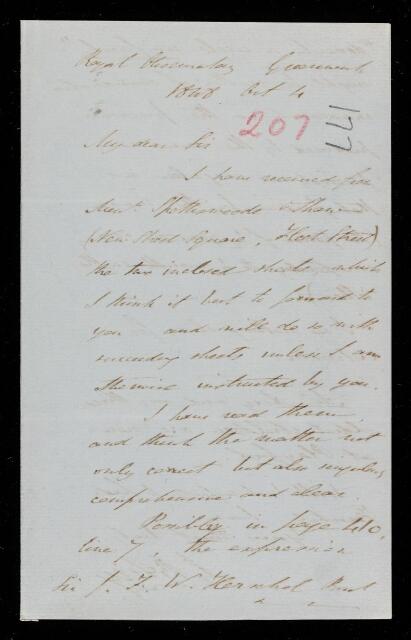 Royal Observatory Greenwich
1848 Oct 4
207
177
My dear Sir
I have received from
Mess.rs Spottiswoode & Shaw
(New Street Square, Fleet Street)
the two inclosed sheets which
I think it best to forward to
you and will do so with
succeeding sheets unless I am
otherwise instructed by you.
I have read them
and think the matter not
only correct but also singularly
comprehensive and clear.
Possibly in page 410,
line 7, the expression
Sir J. F. W. Herschel Bart